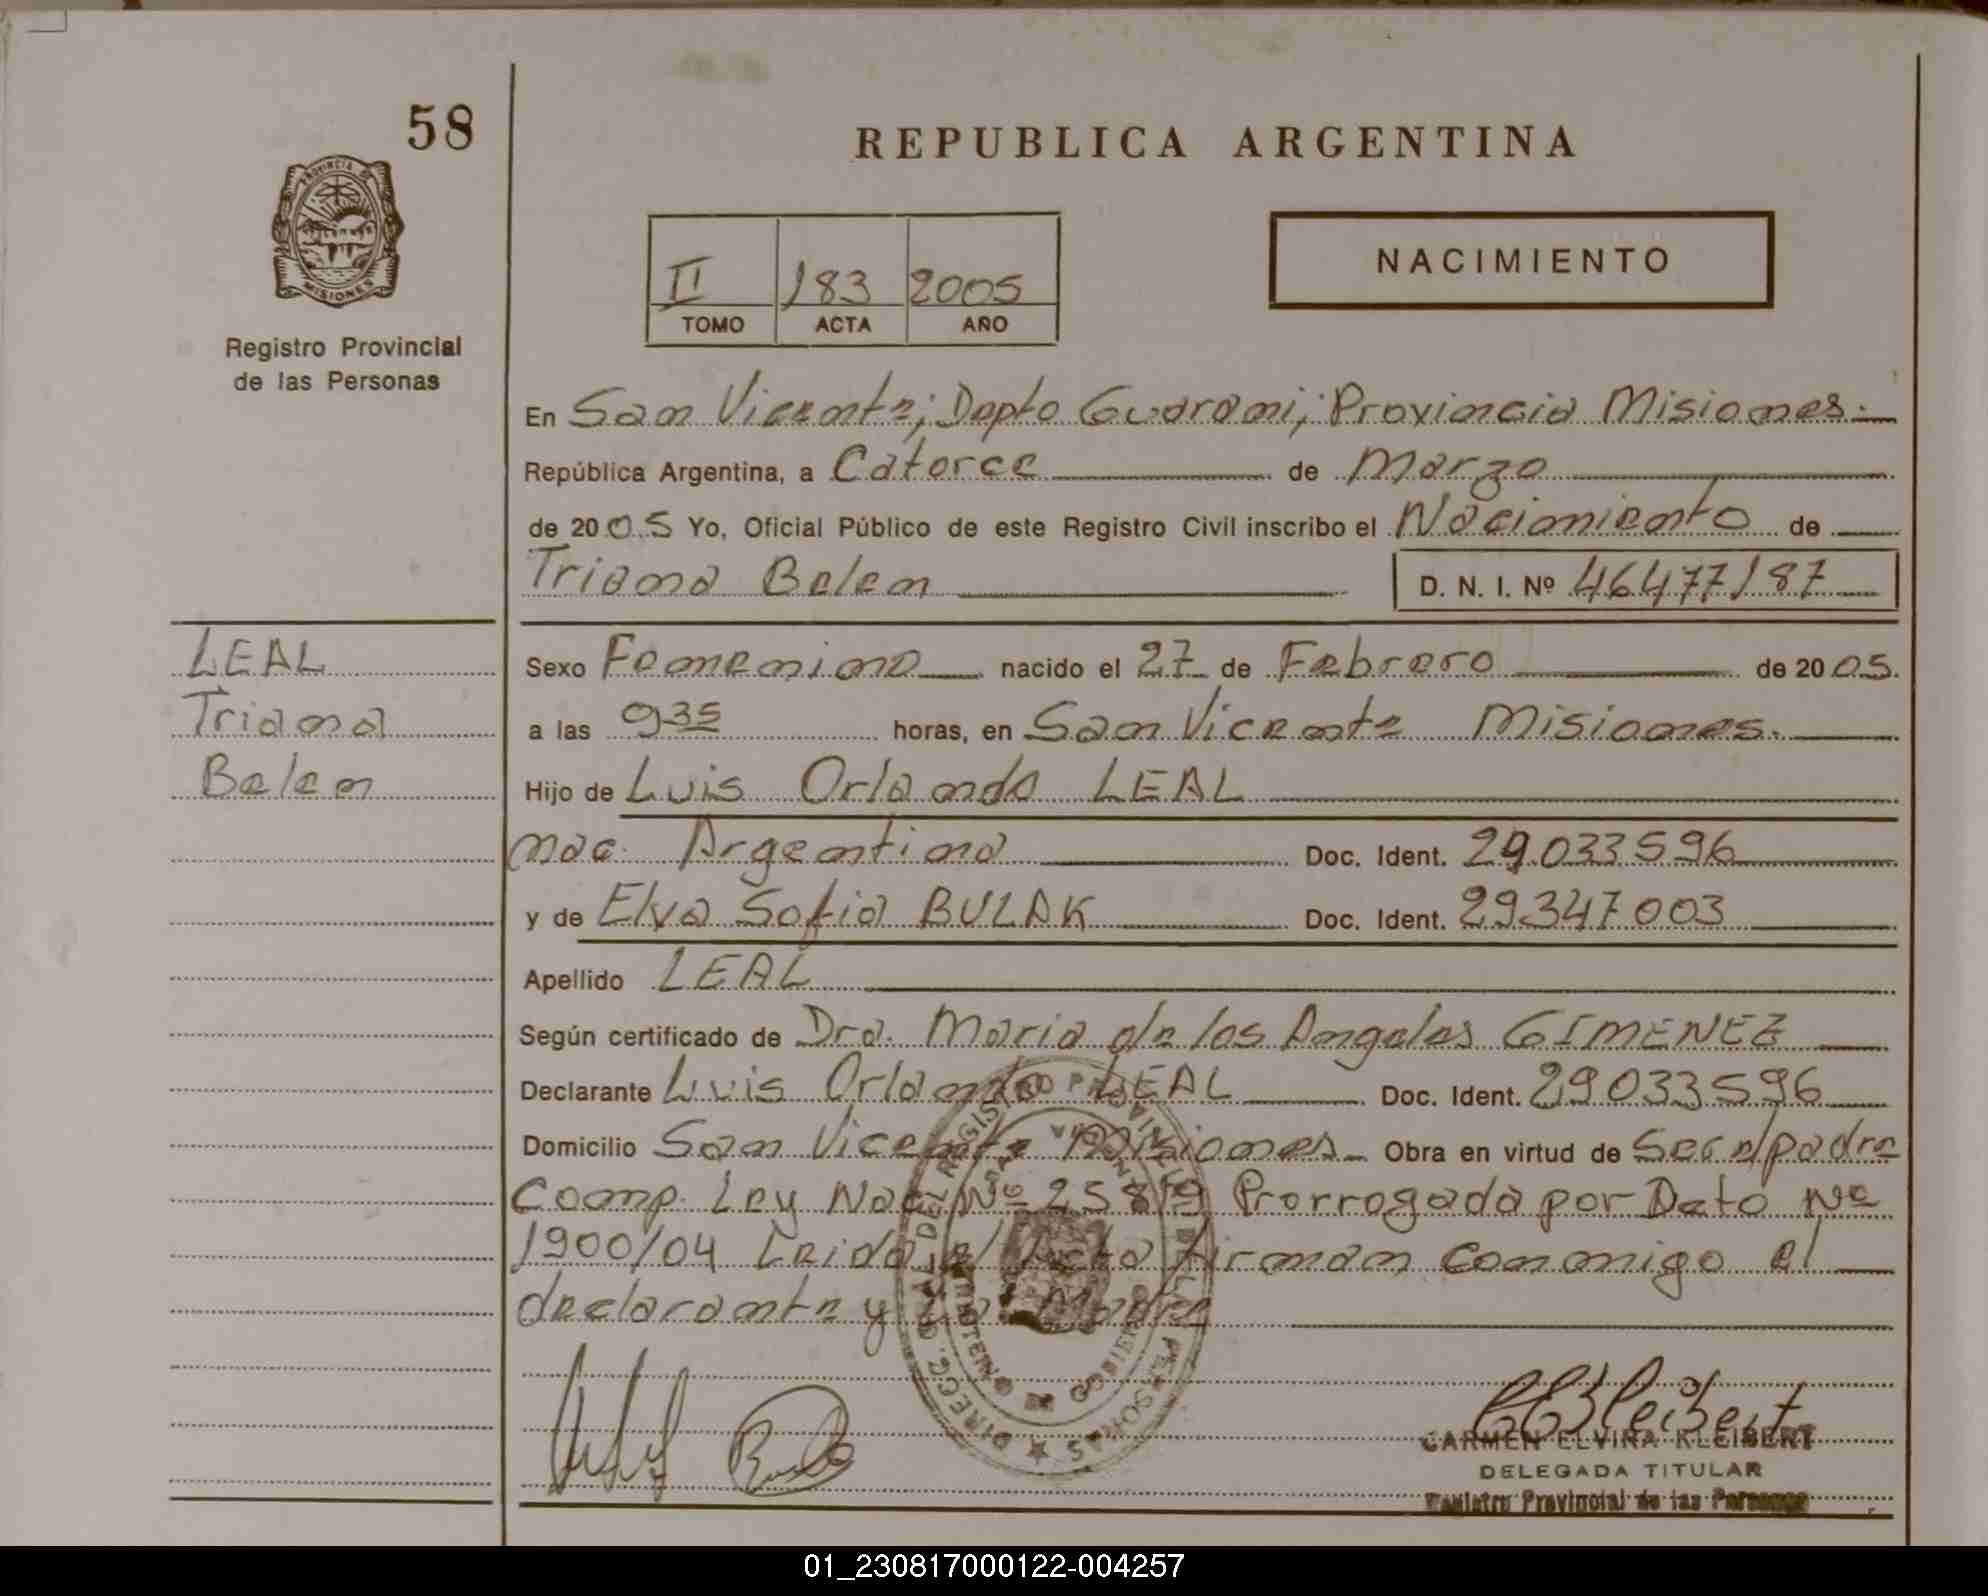 58
REPUBLICA ARGENTINA
PROVINCIA DE
MISIONES
Registro Provincial
de las Personas
NACIMIENTO
II 183 2005
TOMO ACTA AÑO
En San Vicente; Depto Guarani; Provincia Misiones.
República Argentina, a Catorce de Marzo
de 2005 Yo, Oficial Público de este Registro Civil inscribo el Nacimiento de
Triana Belen D. N. I. Nº 46477187
LEAL
Triana
Belen
Sexo Femenino nacido el 27 de Febrero de 2005.
a las 9 35 horas, en San Vicente Misiones.
Hijo de Luis Orlando LEAL
nac. Argentina Doc. Ident. 29.033596
y de Elva Sofia BULAK Doc. Ident. 29347003
Apellido LEAL
Según certificado de Dra. Maria de los Angeles GIMENEZ
Declarante Luis Orlando LEAL Doc. Ident. 29033596
Domicilio San Vicente Misiones Obra en virtud de Ser e/padre
Comp. Ley Nac. Nº 25819 Prorrogada por Dcto Nº
1900/04 Leida el Acta firman conmigo el
declarante y la Madre
CARMEN ELVIRA KLEIBERT
DELEGADA TITULAR
Registro Provincial de las Personas
01_230817000122-004257